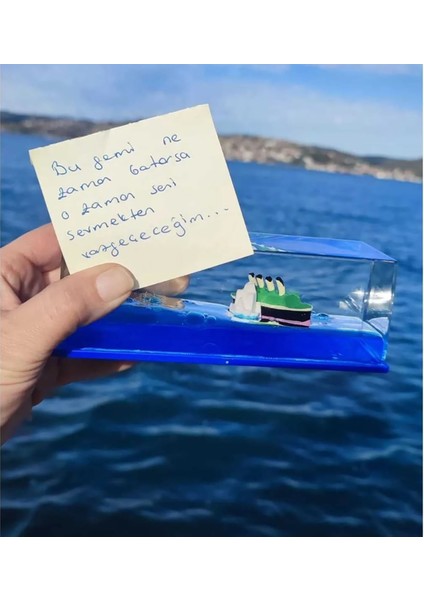 Bu gemi ne
zaman batarsa
o zaman seni
sevmekten
vazgeçeceğim...